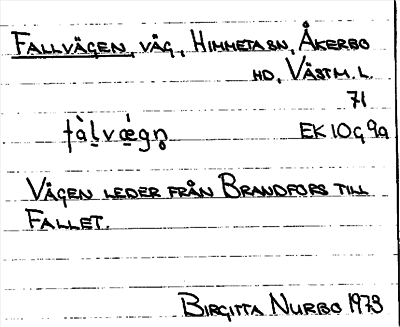 FALLVÄGEN, VÄG, HIMMETA SN, ÅKERBO
HD, VÄSTM. L.
71
fàl̠vǽ̠gn̥ EK 10G 9a
VÄGEN LEDER FRÅN BRANDFORS TILL
FALLET.
BIRGITTA NURBO 1973